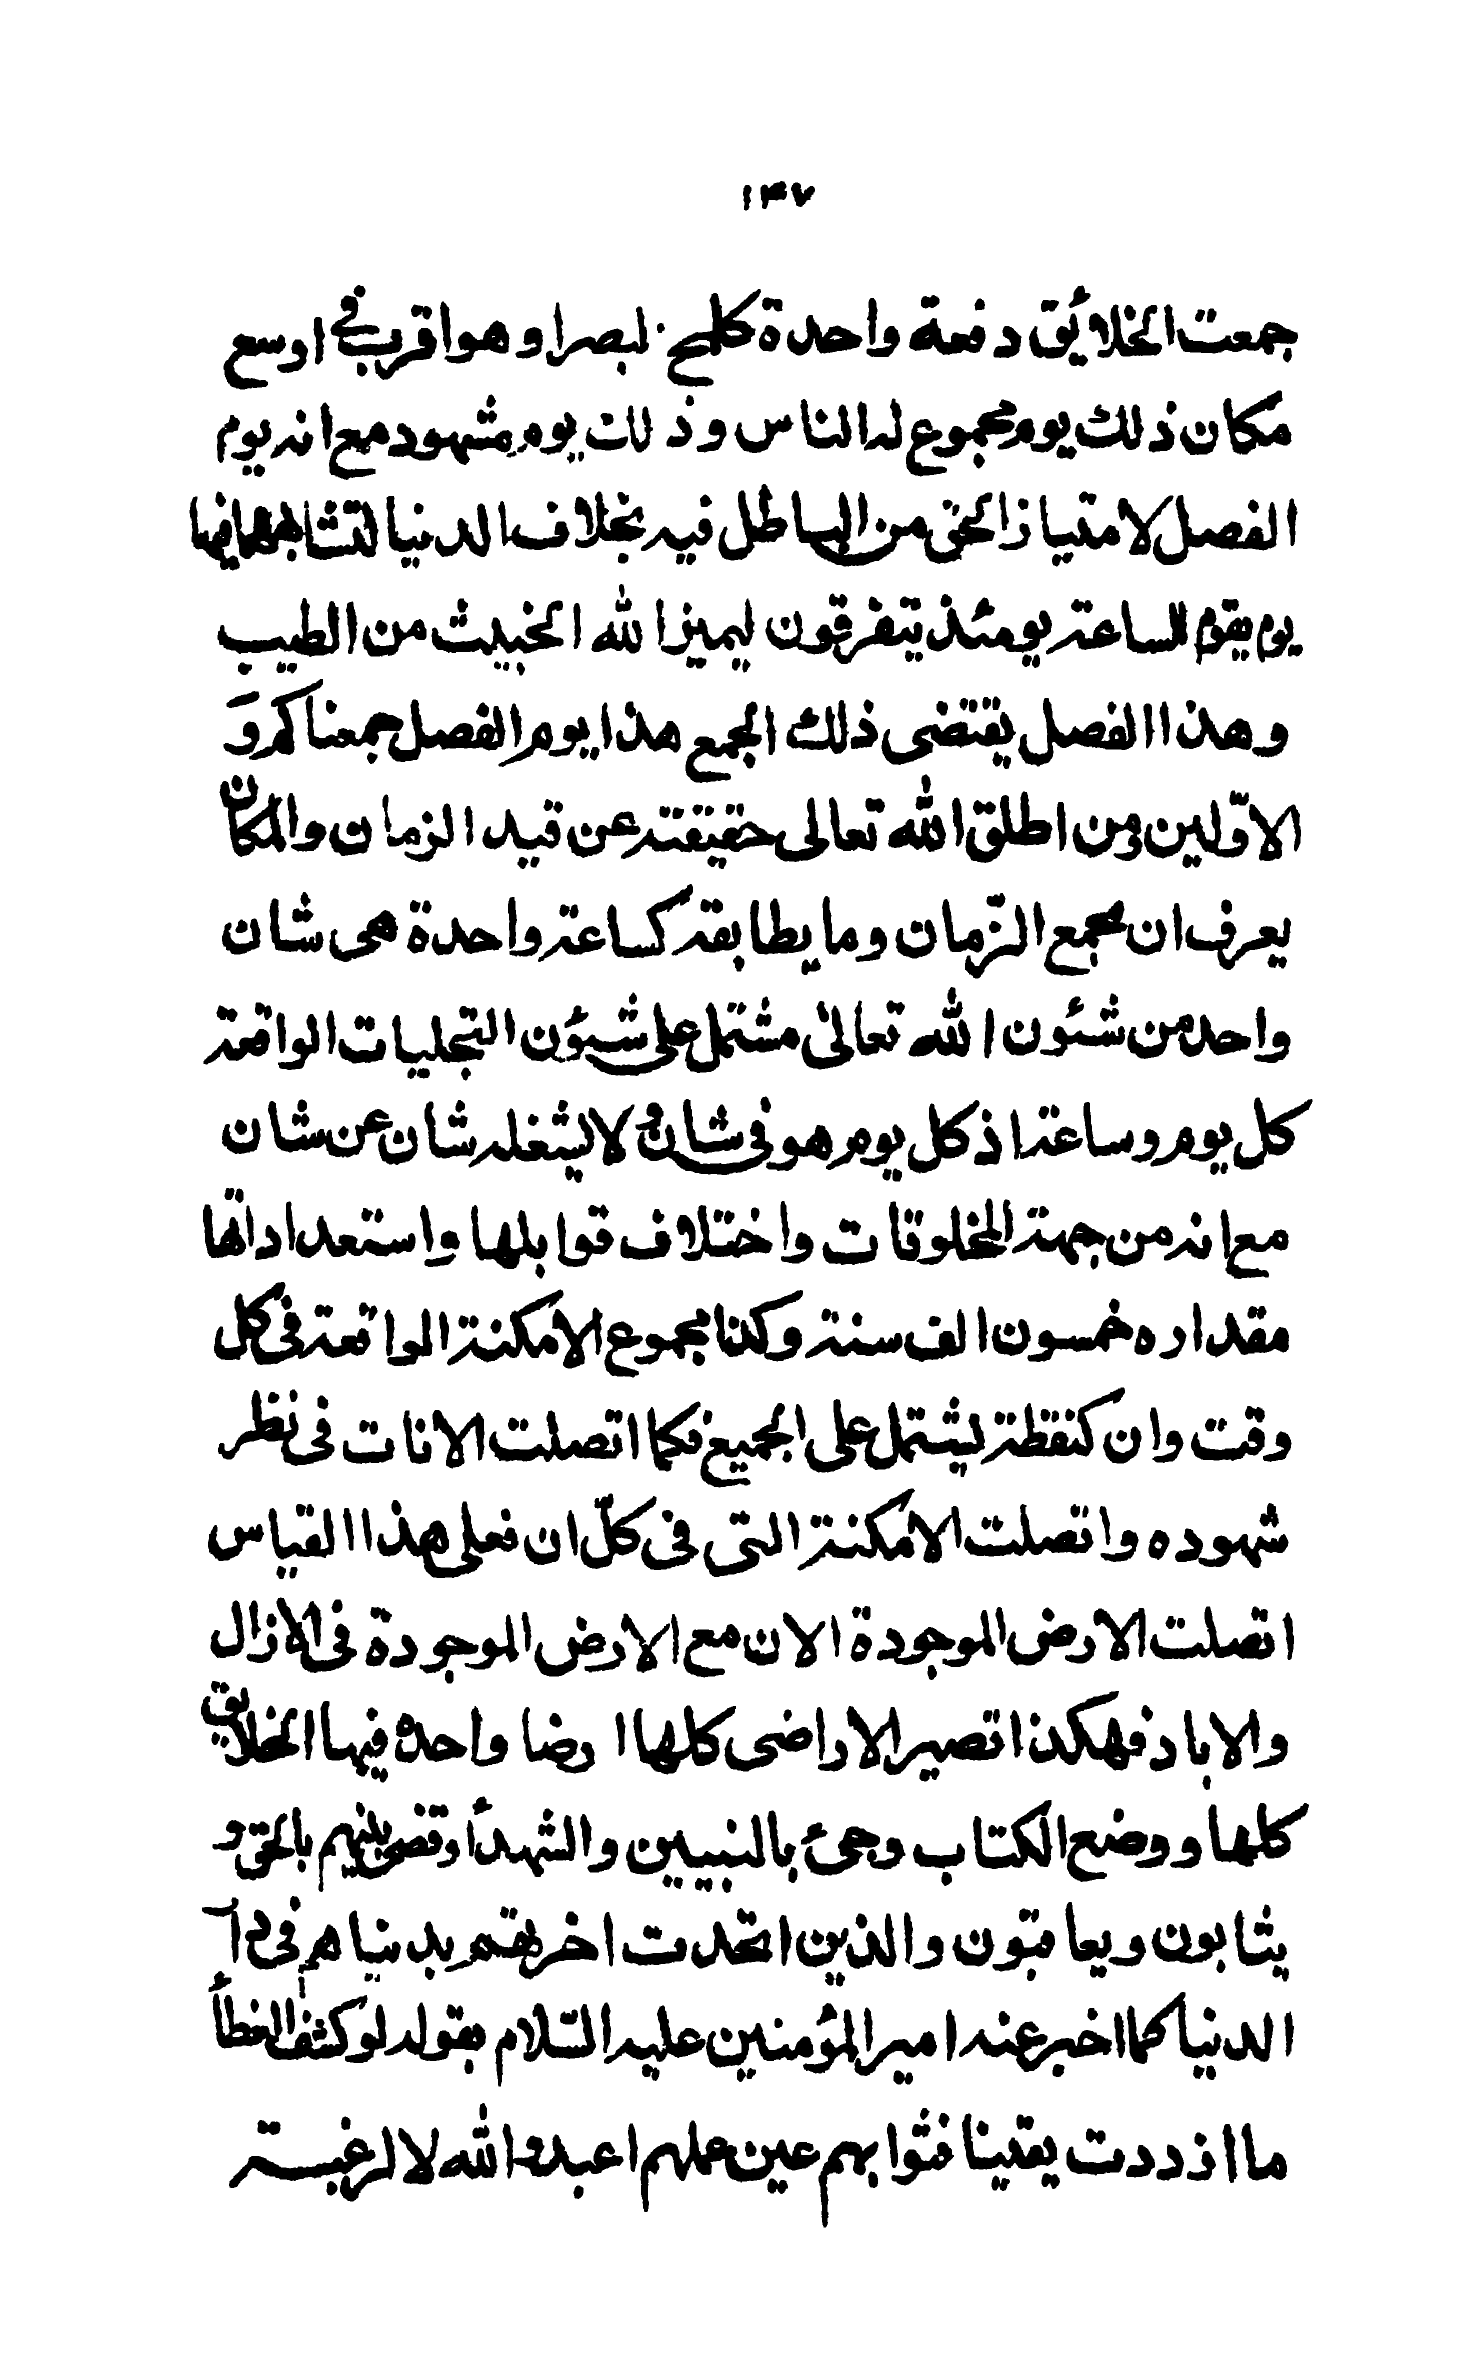 ١٤٧
جمعت الخلائق دفعة واحدة كلمح البصر او هو اقرب في اوسع
مكان ذلك يوم مجموع له الناس وذلك يوم مشهود مع انه يوم
الفصل لامتياز الحق من الباطل فيه بخلاف الدنيا لتشابههما فيها
يوم يقوم الساعة يومئذ يتفرقون ليميز الله الخبيث من الطيب
وهذا الفصل يقتضى ذلك الجمع هذا يوم الفصل جمعناكم وَ
الاوّلين ومن اطلق الله تعالى حقيقته عن قيد الزمان والمكان
يعرف ان مجمع الزّمان وما يطابقه كساعة واحدة هى شان
واحد من شئون الله تعالى مشتمل على شئون التجليات الواقعة
كل يوم وساعة اذ كل يوم هو فى شان ولا يشغله شان عن شان
مع انه من جهة المخلوقات واختلاف قوابلها واستعداداتها
مقداره خمسون الف سنة وكذا مجموع الامكنة الواقعة فى كل
وقت وان كنقطة ليشتمل على الجميع فكما اتصلت الانات فى نظر
شهوده واتصلت الامكنة التى فى كلّ ان فعلى هذا القياس
اتصلت الارض الموجودة الان مع الارض الموجودة فى الازال
والاباد فهكذا تصير الاراضى كلها ارضا واحده فيها الخلايق
كلها ووضع الكتاب وجئ بالنبيين والشهدأ وقضى بينهم بالحق و
يثابون ويعاقبون والذين اتحدت اخريهم بدنياهم فى دآ
الدنيا كما اخبر عنه امير المؤمنين عليه السّلام بقوله لو كشف الغطأ
ما اذددت يقينا فثوابهم عين عملهم اعبدوا الله لا لرغبة